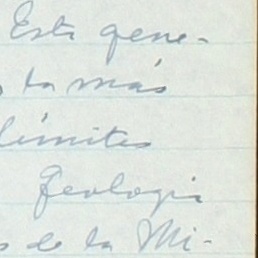 Este gene-
la más
límites
Geologi
de la Mi-